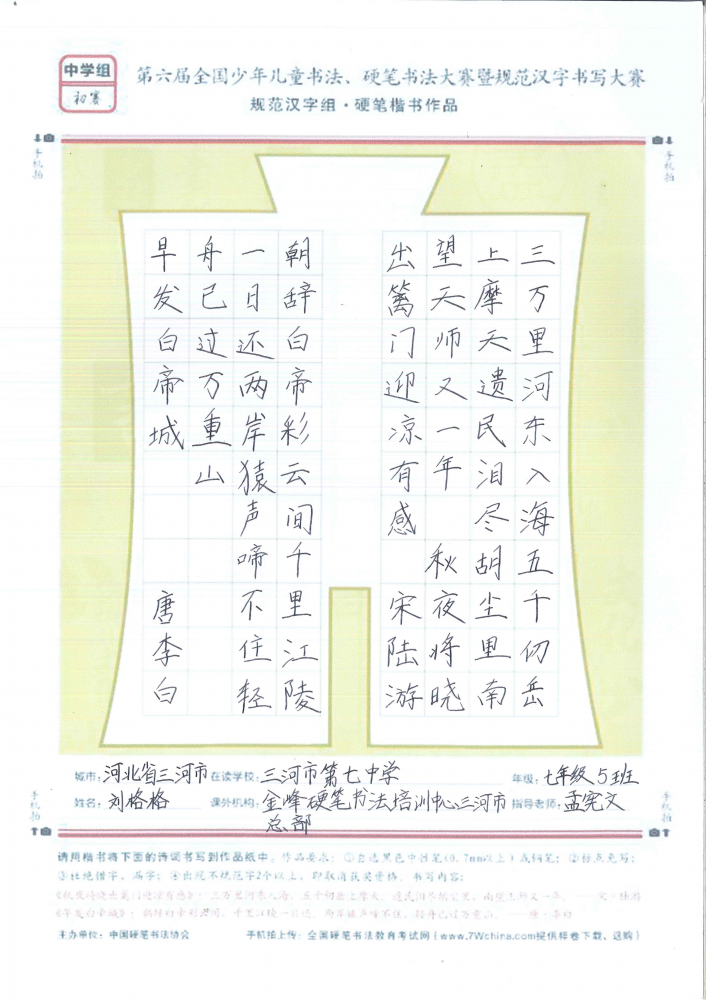 中学组
初赛
第六届全国少年儿童书法、硬笔书法大赛暨规范汉字书写大赛
规范汉字组·硬笔楷书作品
手机拍
手机拍
三万里河东入海五千仞岳
上摩天遗民泪尽胡尘里南
望天师又一年 秋夜将晓
出篱门迎凉有感 宋陆游
朝辞白帝彩云间千里江陵
一日还两岸猿声啼不住轻
舟已过万重山
早发白帝城 唐李白
城市：河北省三河市 在读学校：三河市第七中学 年级：七年级5班
姓名：刘格格 课外机构：金峰硬笔书法培训中心三河市总部 指导老师：孟宪文
手机拍
手机拍
请用楷书将下面的诗词书写到作品纸中。作品要求：①自选黑色中性笔（0.7mm以上）或钢笔；②标点免写；
③杜绝错字、漏字；④出现不规范字2个以上，即取消获奖资格。书写内容：
《秋夜将晓出篱门迎凉有感》：三万里河东入海，五千仞岳上摩天。遗民泪尽胡尘里，南望王师又一年。——宋·陆游
《早发白帝城》：朝辞白帝彩云间，千里江陵一日还。两岸猿声啼不住，轻舟已过万重山。——唐·李白
主办单位：中国硬笔书法协会 手机拍上传：全国硬笔书法教育考试网（www.7Wchina.com提供样卷下载、选购）